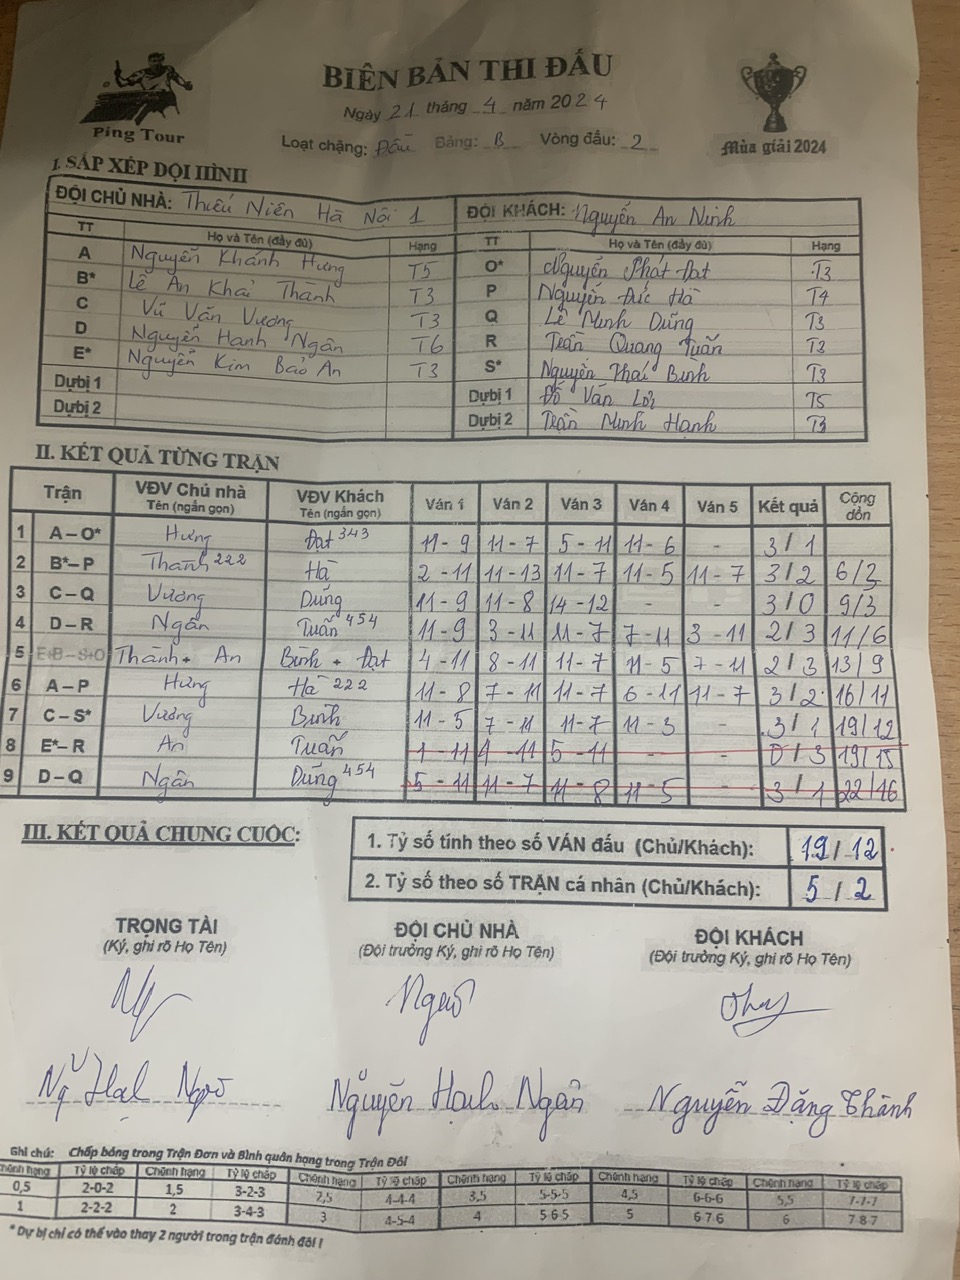 BIÊN BẢN THI ĐẤU
Ping Tour
Ngày 21 tháng 4 năm 2024
Loại chặng: Đấu Bảng: B Vòng đấu: 2
Mùa giải 2024
I. SẮP XẾP ĐỘI HÌNH
ĐỘI CHỦ NHÀ: Thiếu Niên Hà Nội 1 ĐỘI KHÁCH: Nguyễn An Ninh
TT Họ và Tên (đầy đủ) Hạng TT Họ và Tên (đầy đủ) Hạng
A Nguyễn Khánh Hưng T5 O* Nguyễn Phát Đạt T3
B* Lê An Khải Thành T3 P Nguyễn Đức Hà T4
C Vũ Văn Vương T3 Q Lê Minh Dũng T3
D Nguyễn Hạnh Ngân T6 R Trần Quang Tuấn T3
E* Nguyễn Kim Bảo An T3 S* Nguyễn Thái Bình T3
Dự bị 1 Dự bị 1 Đỗ Văn Lợi T5
Dự bị 2 Dự bị 2 Trần Minh Hạnh T3
II. KẾT QUẢ TỪNG TRẬN
Trận VĐV Chủ nhà Tên (ngắn gọn) VĐV Khách Tên (ngắn gọn) Ván 1 Ván 2 Ván 3 Ván 4 Ván 5 Kết quả Cộng dồn
1 A – O* Hưng Đạt 343 11 - 9 11 - 7 5 - 11 11 - 6 - 3 / 1
2 B* – P Thành 222 Hà 2 - 11 11 - 13 11 - 7 11 - 5 11 - 7 3 / 2 6/3
3 C – Q Vương Dũng 11 - 9 11 - 8 14 - 12 - - 3 / 0 9/3
4 D – R Ngân Tuấn 454 11 - 9 3 - 11 11 - 7 7 - 11 3 - 11 2 / 3 11/6
5 E+B – S+O Thành + An Bình + Đạt 4 - 11 8 - 11 11 - 7 11 - 5 7 - 11 2 / 3 13/9
6 A – P Hưng Hà 222 11 - 8 7 - 11 11 - 7 6 - 11 11 - 7 3 / 2 16/11
7 C – S* Vương Bình 11 - 5 7 - 11 11 - 7 11 - 3 - 3 / 1 19/12
8 E* – R An Tuấn 1 - 11 4 - 11 5 - 11 - - 0 / 3 19/15
9 D – Q Ngân Dũng 454 5 - 11 11 - 7 11 - 8 11 - 5 - 3 / 1 22/16
III. KẾT QUẢ CHUNG CUỘC:
1. Tỷ số tính theo số VÁN đấu (Chủ/Khách): 19 / 12
2. Tỷ số theo số TRẬN cá nhân (Chủ/Khách): 5 / 2
TRỌNG TÀI ĐỘI CHỦ NHÀ ĐỘI KHÁCH
(Ký, ghi rõ Họ Tên) (Đội trưởng Ký, ghi rõ Họ Tên) (Đội trưởng Ký, ghi rõ Họ Tên)
Ngân
Nguyễn Hạnh Ngân Nguyễn Đặng Thành
Ghi chú: Chấp bóng trong Trận Đơn và Bình quân hạng trong Trận Đôi
Chênh hạng Tỷ lệ chấp Chênh hạng Tỷ lệ chấp Chênh hạng Tỷ lệ chấp Chênh hạng Tỷ lệ chấp Chênh hạng Tỷ lệ chấp Chênh hạng Tỷ lệ chấp
0,5 2-0-2 1,5 3-2-3 2,5 4-4-4 3,5 5-5-5 4,5 6-6-6 5,5 7-7-7
1 2-2-2 2 3-4-3 3 4-5-4 4 5-6-5 5 6-7-6 6 7-8-7
* Dự bị chỉ có thể vào thay 2 người trong trận đánh đôi !